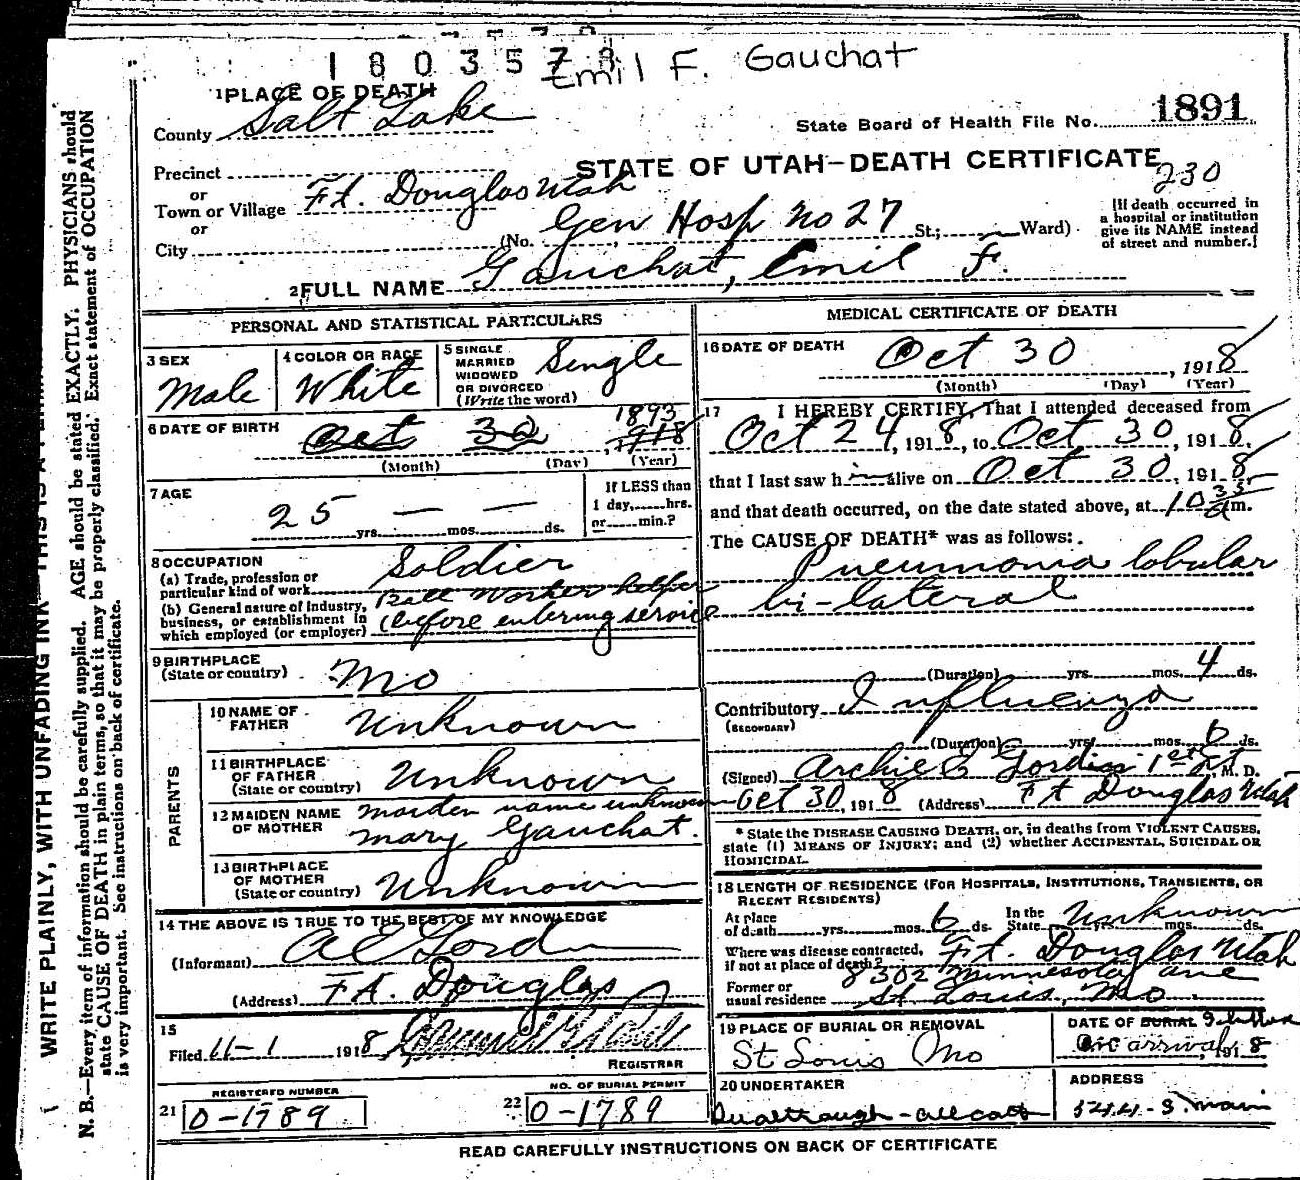 1803578
Emil F. Gauchat
1 PLACE OF DEATH
County Salt Lake
State Board of Health File No. 1891
Precinct
STATE OF UTAH—DEATH CERTIFICATE
230
or
Town or Village Ft. Douglas Utah
or
City (No. Gen Hosp No 27 St.; Ward)
[If death occurred in
a hospital or institution
give its NAME instead
of street and number.]
2 FULL NAME Gauchat, Emil F.
PERSONAL AND STATISTICAL PARTICULARS
3 SEX
Male
4 COLOR OR RACE
White
5 SINGLE
MARRIED
WIDOWED
OR DIVORCED
(Write the word)
Single
6 DATE OF BIRTH
1893
Oct 30, 1918
(Month) (Day) (Year)
7 AGE
25 yrs. — mos. — ds.
If LESS than
1 day,......hrs.
or......min.?
8 OCCUPATION
(a) Trade, profession or
particular kind of work
Soldier
(b) General nature of Industry,
business, or establishment in
which employed (or employer)
helper
(before entering service
9 BIRTHPLACE
(State or country)
Mo
PARENTS
10 NAME OF
FATHER
Unknown
11 BIRTHPLACE
OF FATHER
(State or country)
Unknown
12 MAIDEN NAME
OF MOTHER
maiden name unknown
Mary Gauchat.
13 BIRTHPLACE
OF MOTHER
(State or country)
Unknown
14 THE ABOVE IS TRUE TO THE BEST OF MY KNOWLEDGE
(Informant)
(Address) Ft. Douglas
15
Filed 11-1 1918
REGISTRAR
REGISTERED NUMBER
21 0-1789
NO. OF BURIAL PERMIT
22 0-1789
MEDICAL CERTIFICATE OF DEATH
16 DATE OF DEATH
Oct 30, 1918
(Month) (Day) (Year)
17 I HEREBY CERTIFY, That I attended deceased from
Oct 24, 1918, to Oct 30, 1918,
that I last saw him alive on Oct 30, 1918,
and that death occurred, on the date stated above, at 10 35 a m.
The CAUSE OF DEATH* was as follows:
Pneumonia lobular
bi-lateral
(Duration) yrs. mos. 4 ds.
Contributory Influenza
(SECONDARY)
(Duration) yrs. mos. 6 ds.
(Signed) Archie E 1st Lt, M. D.
Oct 30, 1918 (Address) Ft Douglas Utah
* State the DISEASE CAUSING DEATH, or, in deaths from VIOLENT CAUSES,
state (1) MEANS OF INJURY; and (2) whether ACCIDENTAL, SUICIDAL OR
HOMICIDAL.
18 LENGTH OF RESIDENCE (FOR HOSPITALS, INSTITUTIONS, TRANSIENTS, OR
RECENT RESIDENTS)
At place
of death yrs. mos. 6 ds.
In the
State Unknown yrs. mos. ds.
Where was disease contracted,
if not at place of death? Ft. Douglas Utah
Former or
usual residence
8302 Minnesota ave
St Louis, Mo
19 PLACE OF BURIAL OR REMOVAL
St Louis Mo
DATE OF BURIAL
on arrival, 1918
20 UNDERTAKER
ADDRESS
544 - S. Main
READ CAREFULLY INSTRUCTIONS ON BACK OF CERTIFICATE
WRITE PLAINLY, WITH UNFADING INK—THIS IS A
N. B.—Every item of information should be carefully supplied. AGE should be stated EXACTLY. PHYSICIANS should
state CAUSE OF DEATH in plain terms, so that it may be properly classified. Exact statement of OCCUPATION
is very important. See instructions on back of certificate.